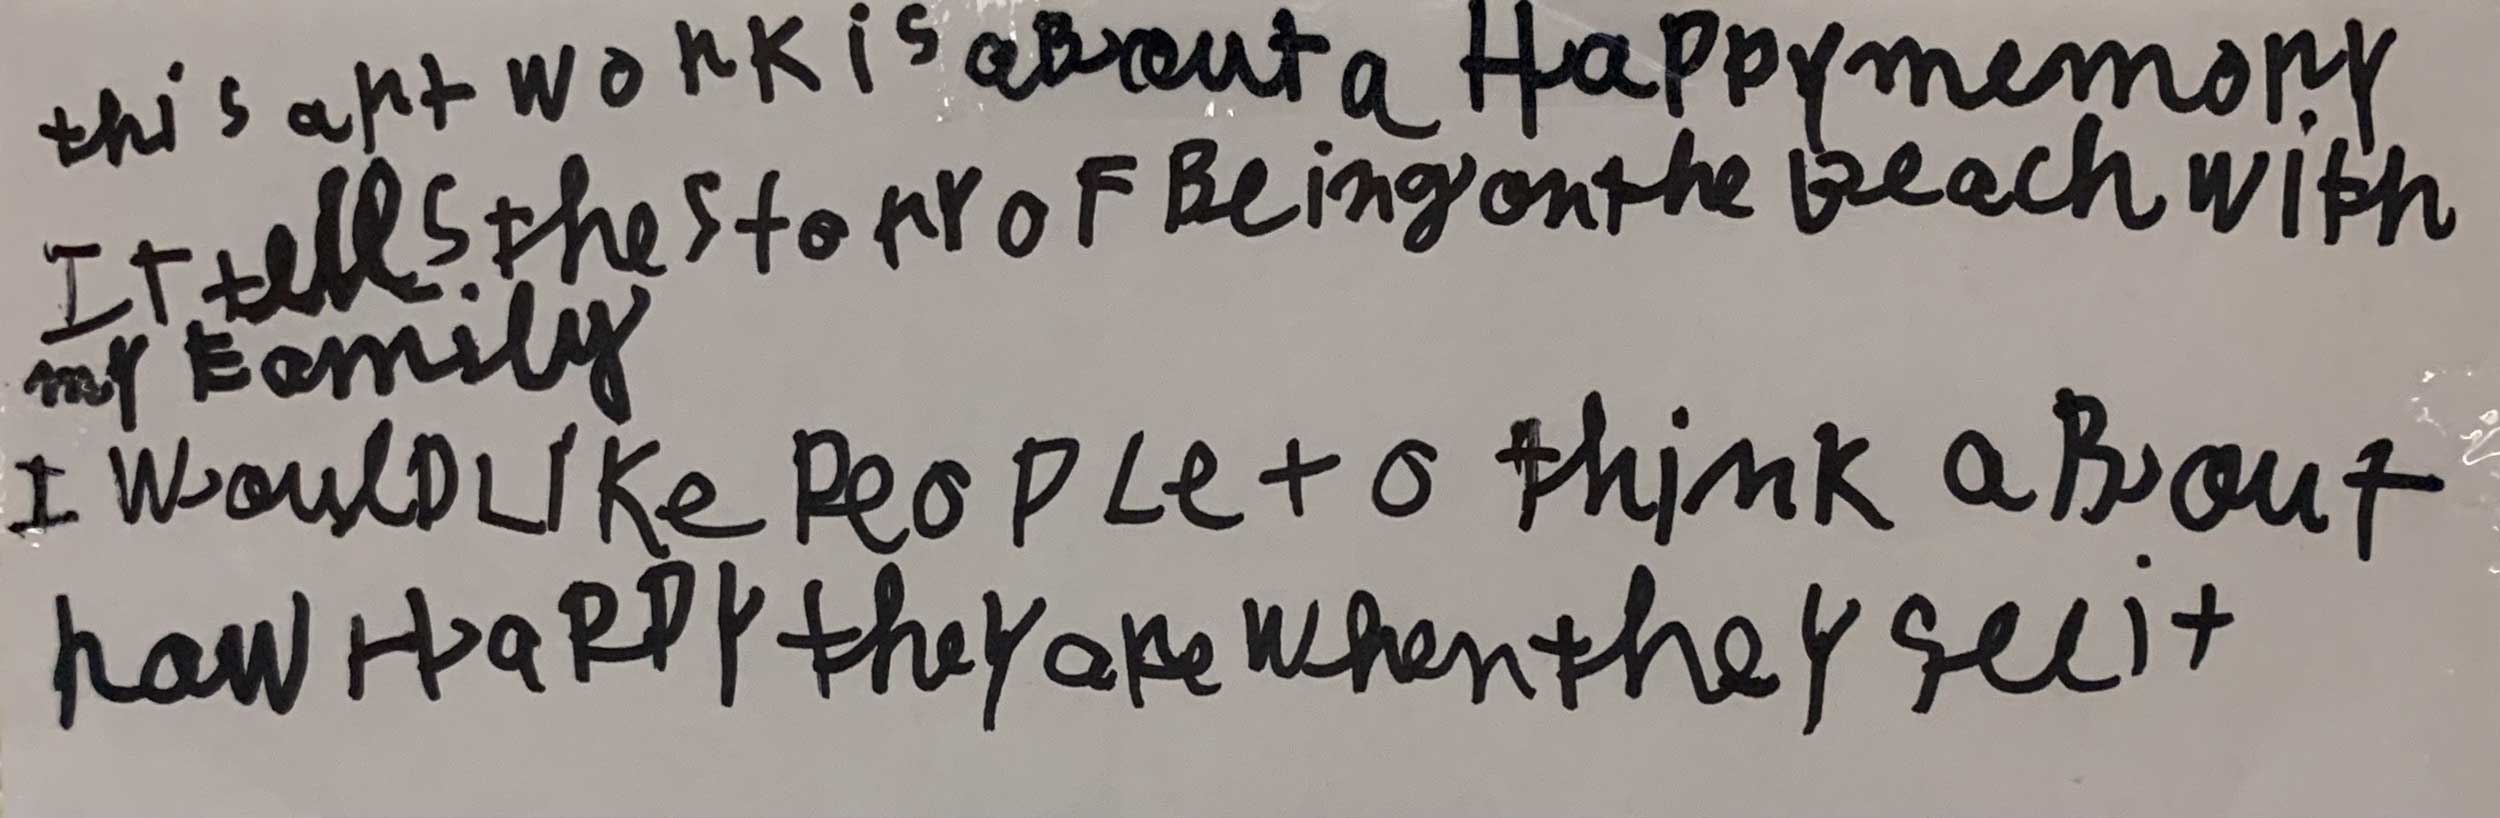 this art work is aBout a Happy memory
It tells the story oF Being on the Beach with
my Family
I WoulD Like PeoPLe to think aBout
how HaPPy they are when they see it